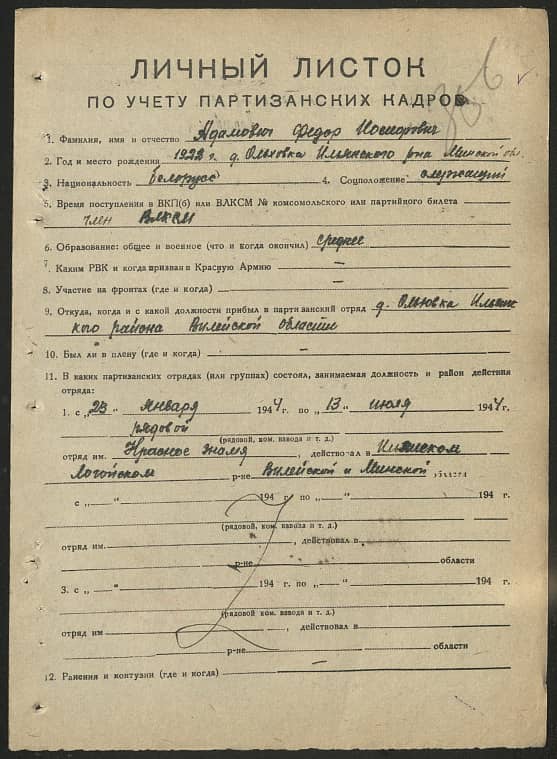 306
ЛИЧНЫЙ ЛИСТОК
ПО УЧЕТУ ПАРТИЗАНСКИХ КАДРОВ
1. Фамилия, имя и отчество Адамович Федор Иосифович
2. Год и место рождения 1922 г. д. Ольховка Ильянского р-на Минской обл.
3. Национальность белорус 4. Соцположение служащий
5. Время поступления в ВКП(б) или ВЛКСМ № комсомольского или партийного билета
член ВЛКСМ
6. Образование: общее и военное (что и когда окончил) среднее
7. Каким РВК и когда призван в Красную Армию —
8. Участие на фронтах (где и когда) —
9. Откуда, когда и с какой должности прибыл в партизанский отряд д. Ольховка Ильянс
кого района Вилейской области
10. Был ли в плену (где и когда) —
11. В каких партизанских отрядах (или группах) состоял, занимаемая должность и район действия
отряда:
1. с „23“ января 1944 г. по „13“ июля 1944 г.
рядовой
(рядовой, ком. взвода и т. д.)
отряд им. Красное знамя, действовал в Ильянском
Логойском р-не Вилейской и Минской области
с „—“ 194 г. по „—“ 194 г.
(рядовой, ком. взвода и т. д.)
отряд им. , действовал в
р-не области
3. с „—“ 194 г. по „—“ 194 г.
(рядовой, ком. взвода и т. д.)
отряд им , действовал в
р-не области
12. Ранения и контузии (где и когда) —